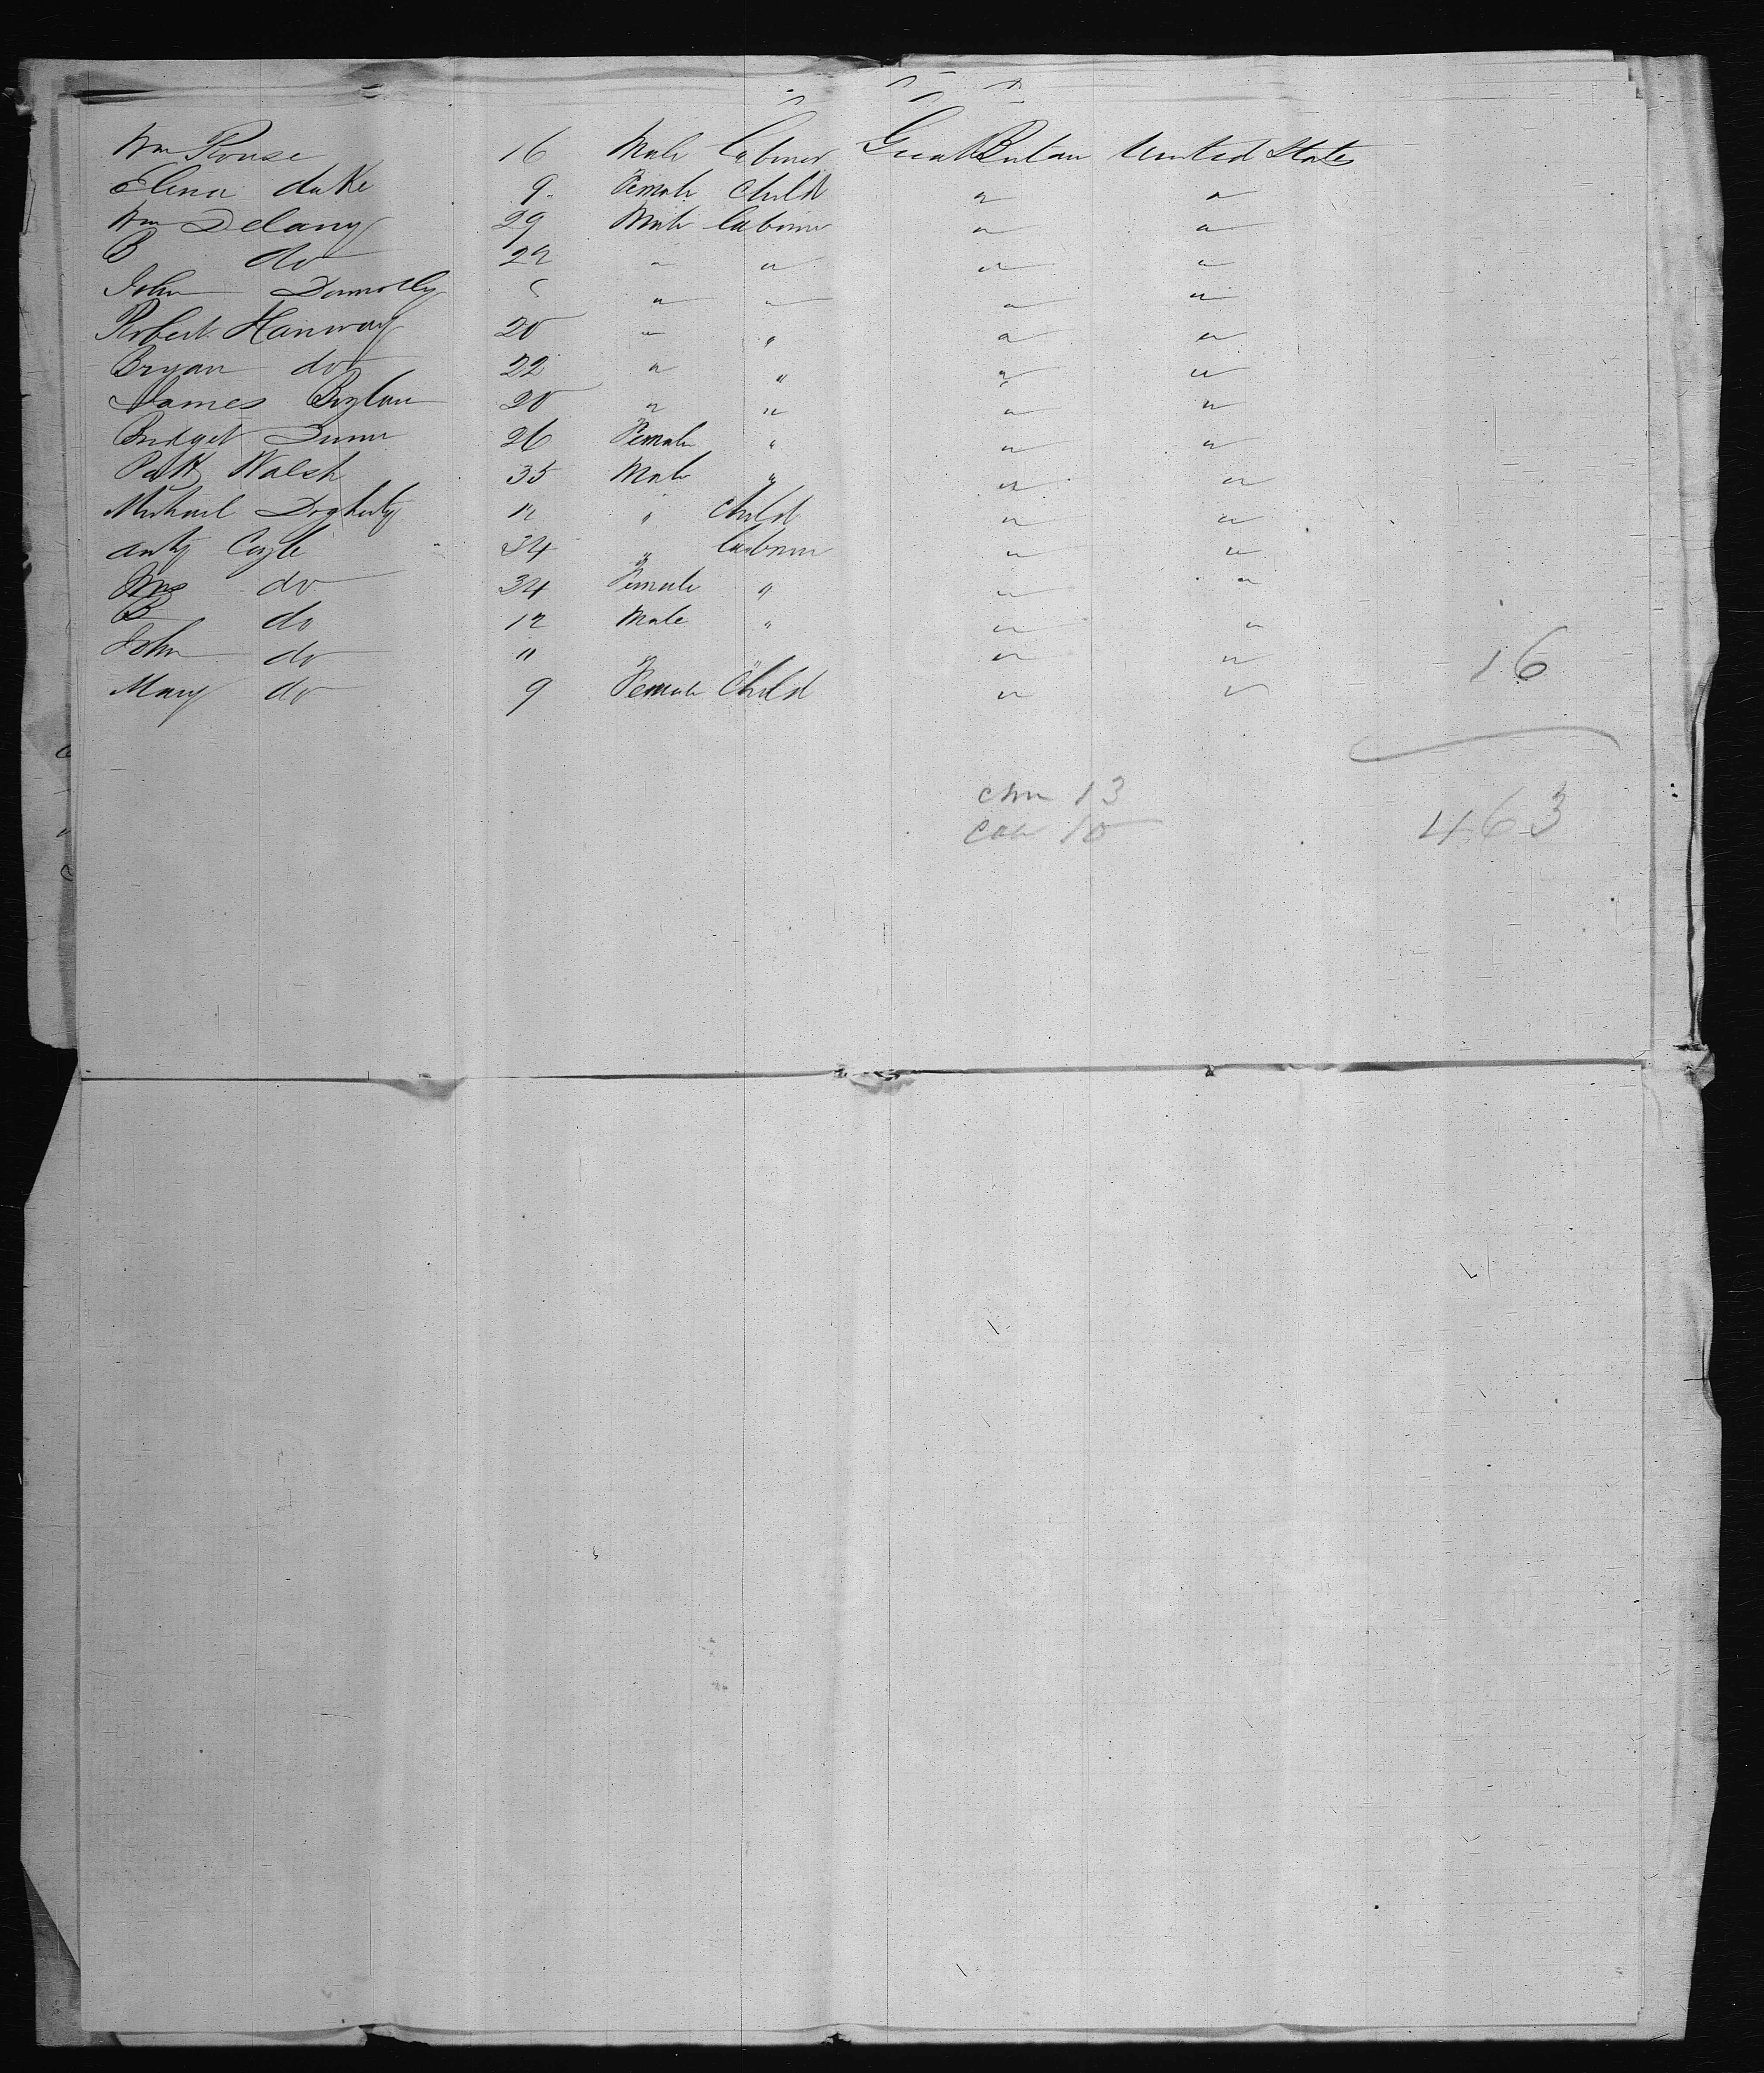 Wm Rouse 16 Male Labourer Great Britain United States
Elena duke 9 Female Child " "
Wm Delany 29 Male labourer " "
B do 22 " " " "
John Donnolly " " " "
Robert Hanway 20 " " " "
Bryan do 22 " " " "
James Boylan 20 " " " "
Bridget Dunn 26 Female " " "
Patk Walsh 35 Male " " "
Michael Dogherty 12 " Child " "
Anty Coyle 34 " labourer " "
Mrs do 34 Female " " "
B do 12 Male " " "
John do 11 " " " "
Mary do 9 Female Child " "
16
13
10
463